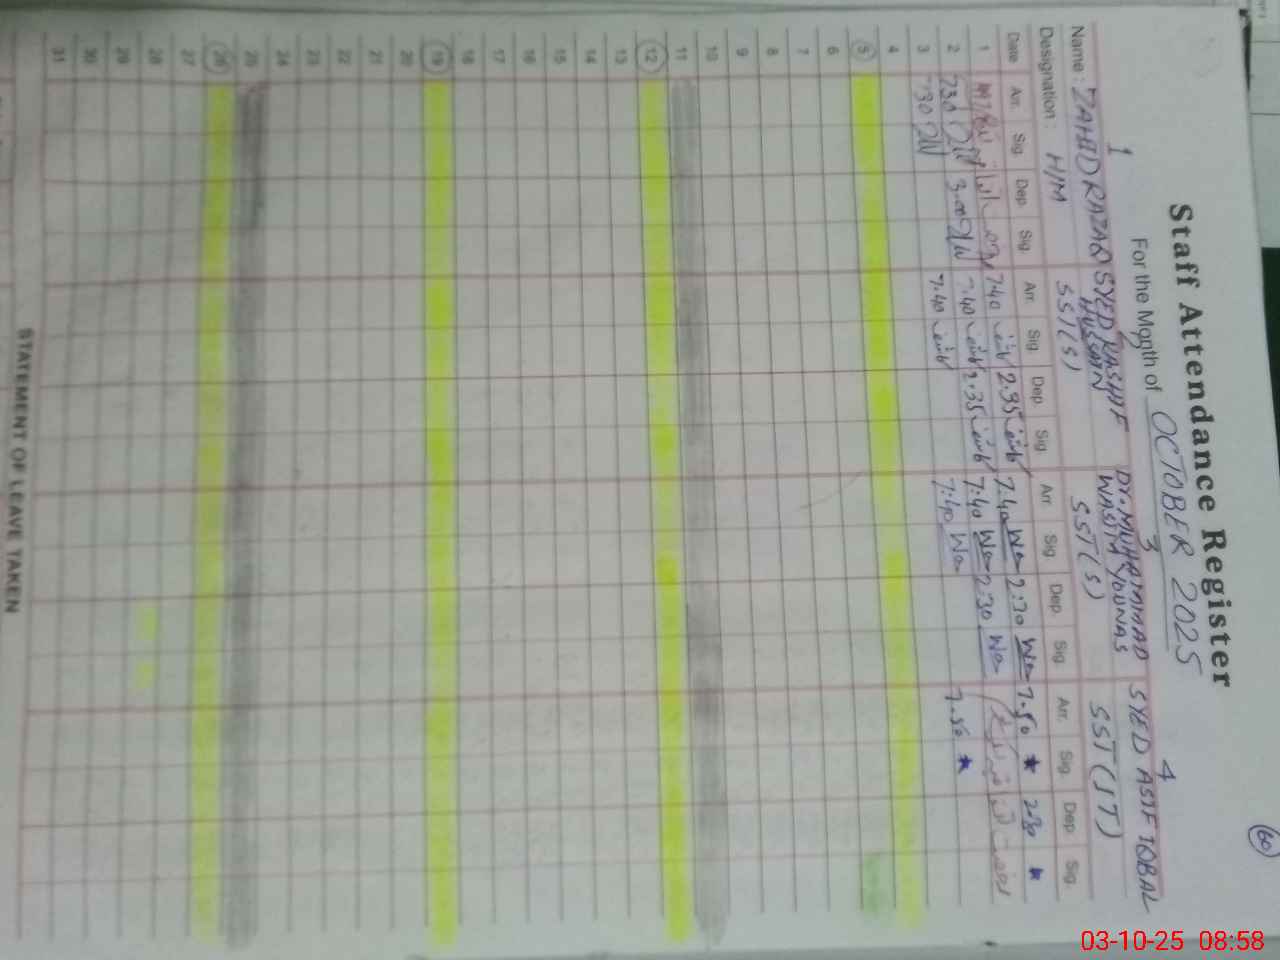 60
Staff Attendance Register
For the Month of OCTOBER 2025
1 2 3 4
Name : ZAHID RAZAQ SYED KASHIF HUSSAIN Dr. MUHAMMAD WASIM YOUNAS SYED ASIF IQBAL
Designation : H/M SST(S) SST(S) SST(IT)
Date Arr. Sig. Dep. Sig. Arr. Sig. Dep. Sig. Arr. Sig. Dep. Sig. Arr. Sig. Dep. Sig.
1 7.40 2.35 7.40 2:30 7.50 2.30
2 7.30 3.00 7.40 2.35 7:40 2:30 رخصت اتفاقیہ
3 7.30 7.40 7:40 7.50
4
5
6
7
8
9
10
11
12
13
14
15
16
17
18
19
20
21
22
23
24
25
26
27
28
29
30
31
STATEMENT OF LEAVE TAKEN
03-10-25 08:58